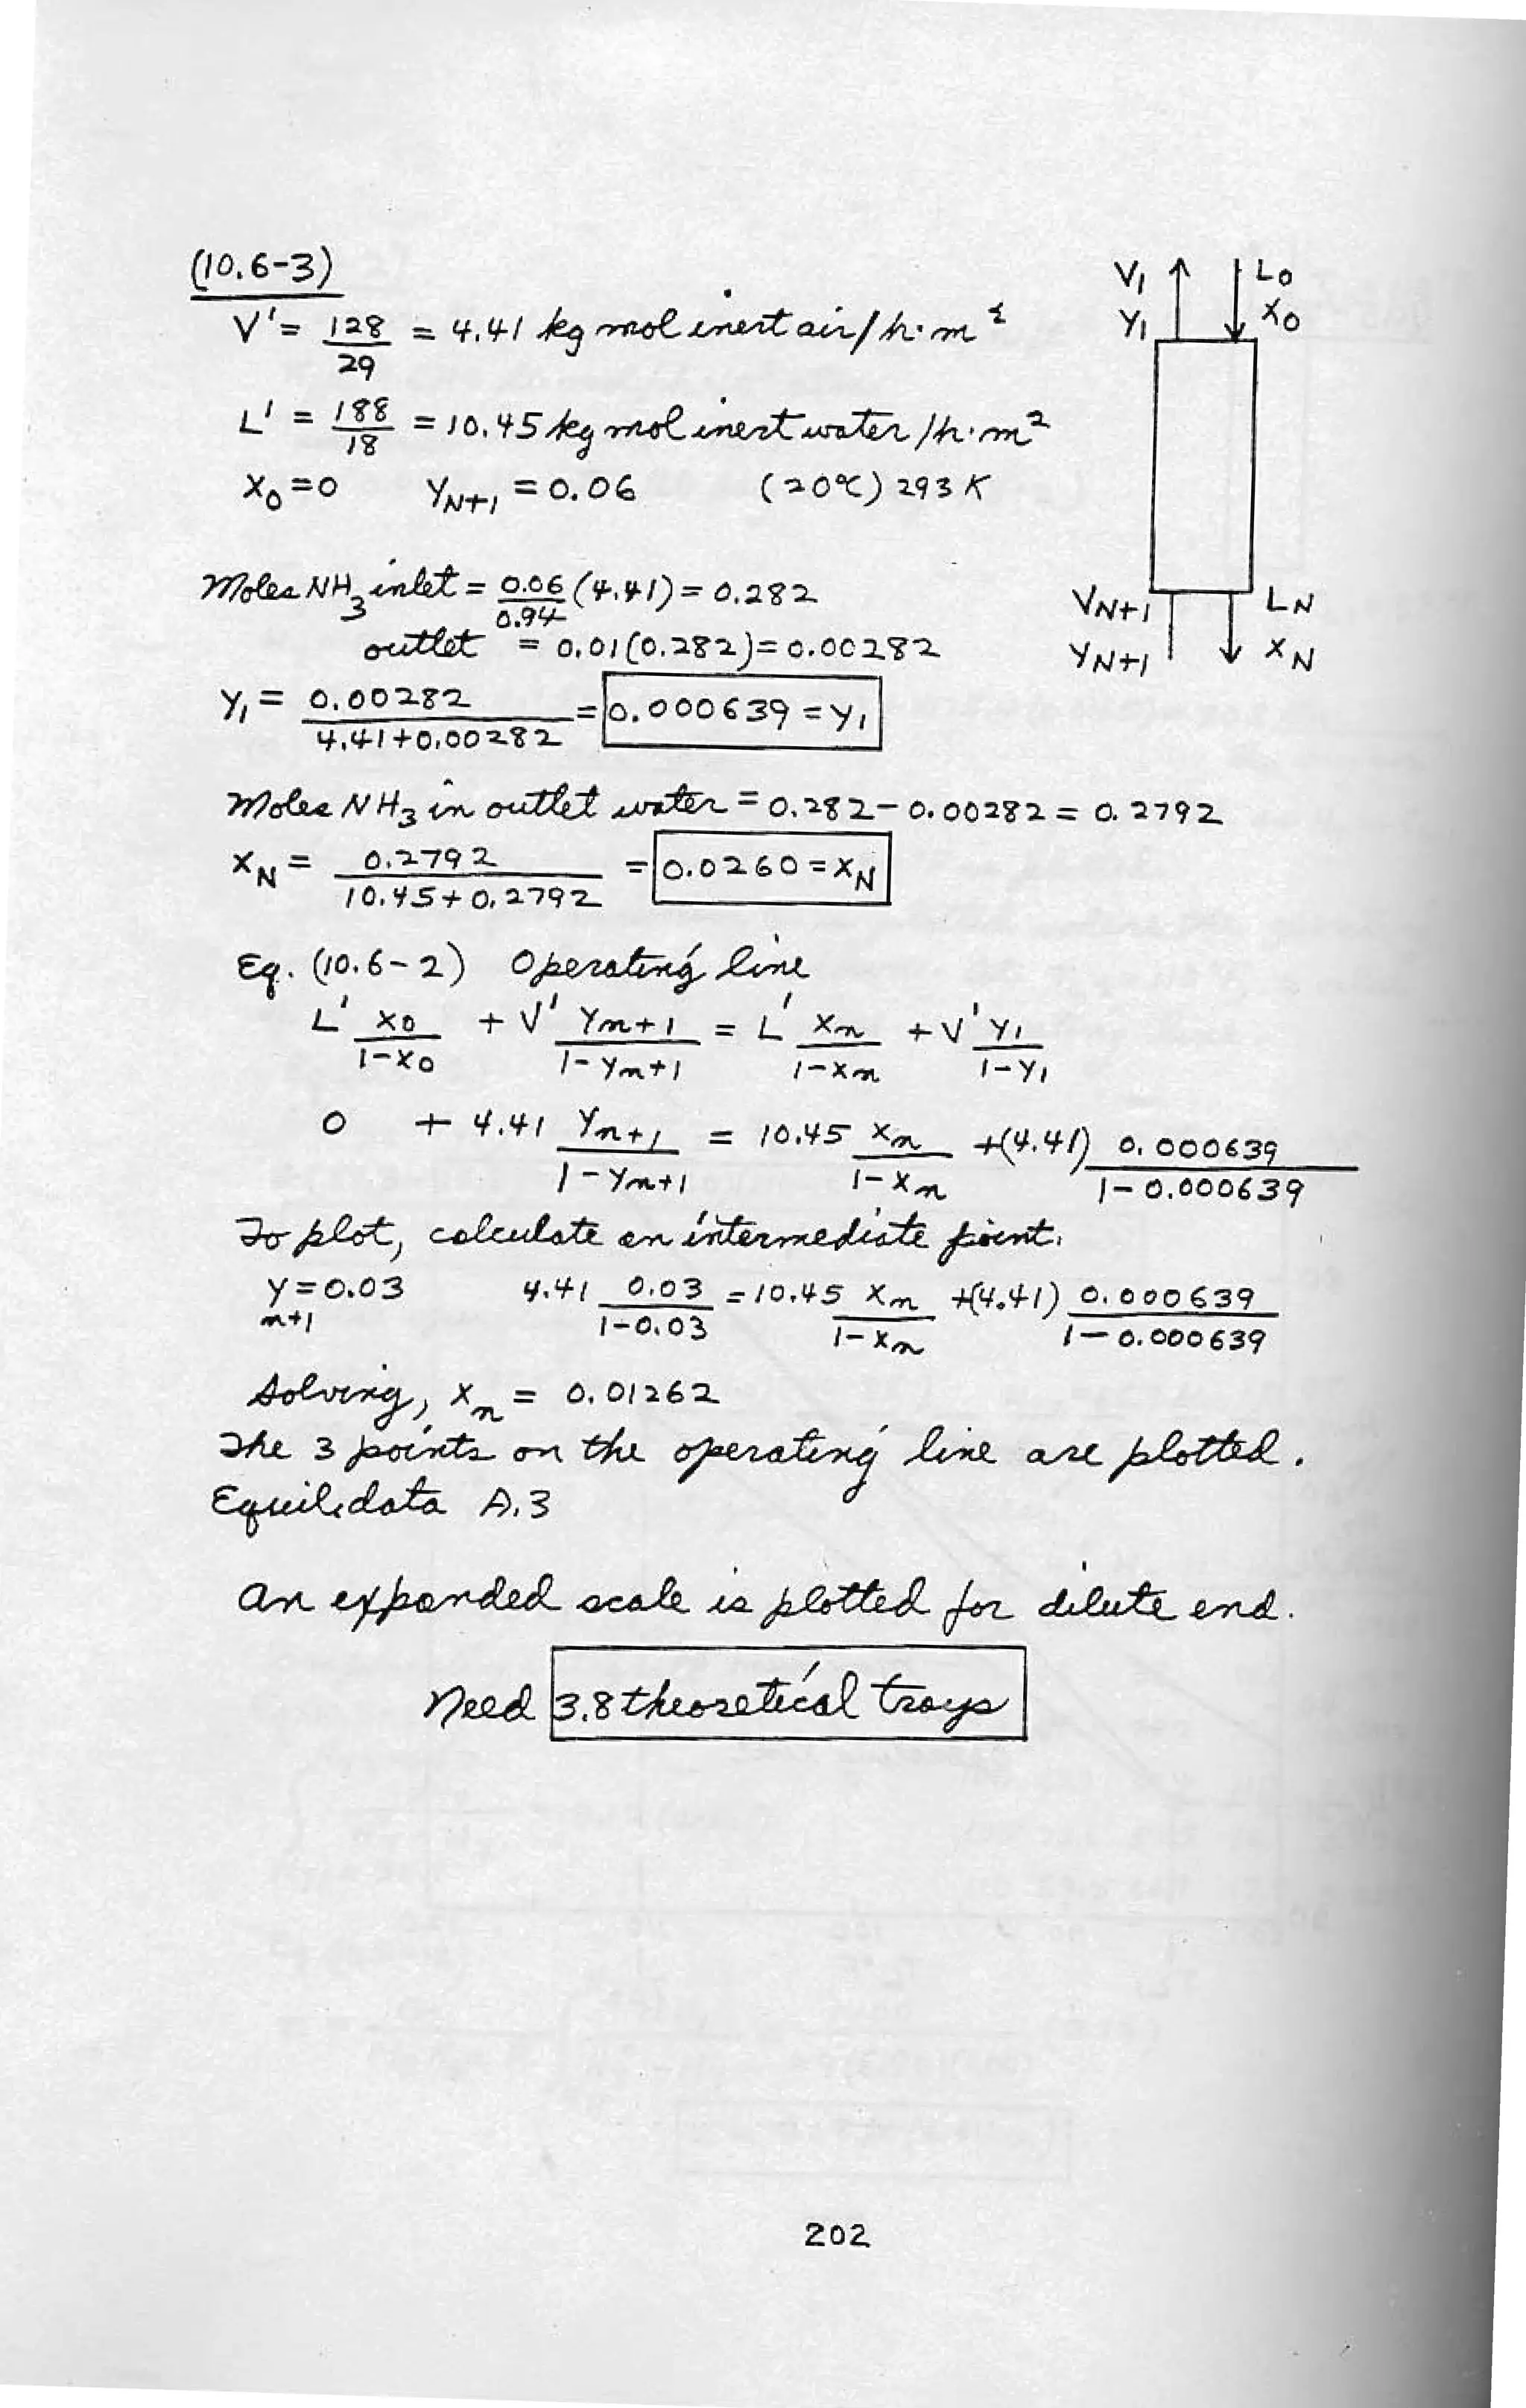 (10.6-3)
V' = 128/29 = 4.41 kg mol inert air/h·m²
L' = 188/18 = 10.45 kg mol inert water/h·m²
x₀ = 0 y_N+1 = 0.06 (20°C) 293 K
V₁ L₀
y₁ x₀
V_N+1 L_N
y_N+1 x_N
Moles NH₃ inlet = 0.06/0.94 (4.41) = 0.282
outlet = 0.01(0.282) = 0.00282
y₁ = 0.00282/(4.41+0.00282) = 0.000639 = y₁
Moles NH₃ in outlet water = 0.282 - 0.00282 = 0.2792
x_N = 0.2792/(10.45+0.2792) = 0.0260 = x_N
Eq. (10.6-2) Operating line
L' x₀/(1-x₀) + V' y_n+1/(1-y_n+1) = L' x_n/(1-x_n) + V' y₁/(1-y₁)
0 + 4.41 y_n+1/(1-y_n+1) = 10.45 x_n/(1-x_n) + (4.41) 0.000639/(1-0.000639)
To plot, calculate an intermediate point.
y_n+1 = 0.03 4.41 0.03/(1-0.03) = 10.45 x_n/(1-x_n) + (4.41) 0.000639/(1-0.000639)
Solving, x_n = 0.01262
The 3 points on the operating line are plotted.
Equil. data A.3
An expanded scale is plotted for dilute end.
Need 3.8 theoretical trays
202